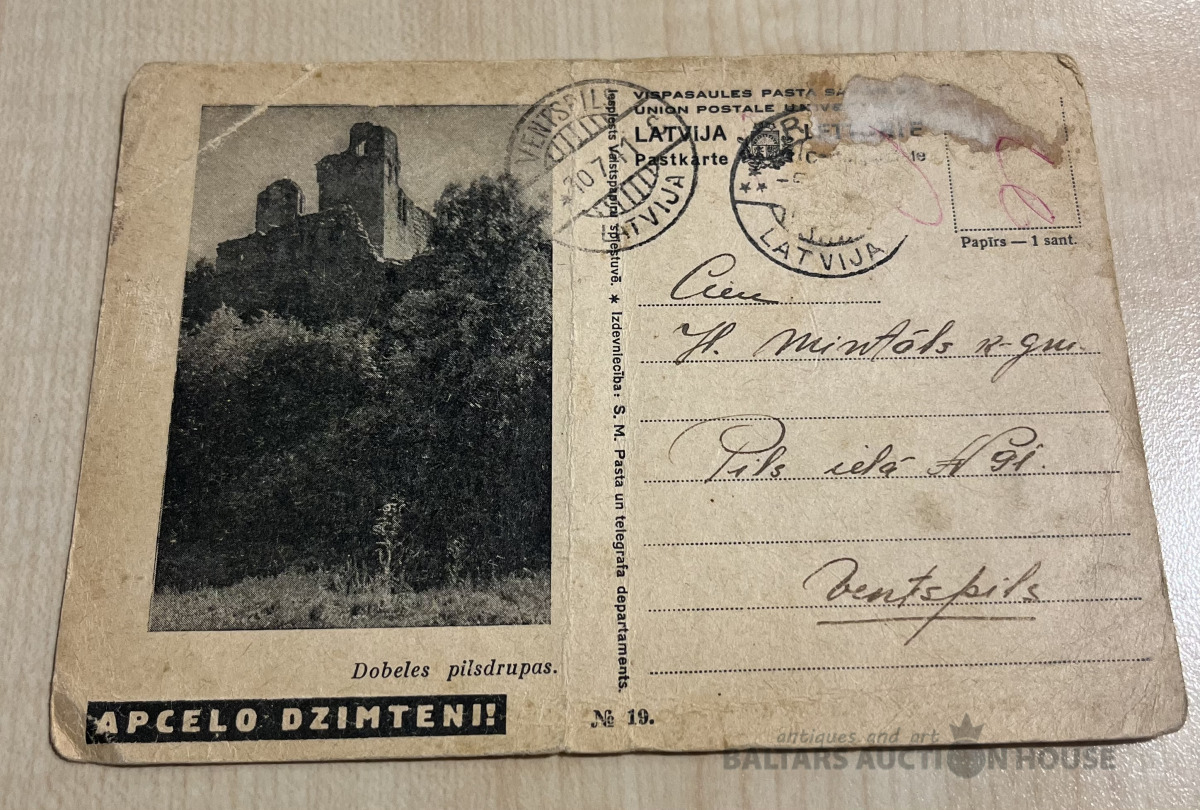 VISPASAULES PASTA
UNION POSTALE
LATVIJA
Pastkarte
VENTSPILS
10.7.41
LATVIJA
LATVIJA
Papīrs — 1 sant.
Iespiests Valstspapīru spiestuvē. * Izdevniecība: S. M. Pasta un telegrafa departaments.
Cien
H. Mintāls k-gm.
Pils ielā №
Ventspils
Dobeles pilsdrupas.
APCEĻO DZIMTENI!
№ 19.
antiques and art
BALTARS AUCTION HOUSE